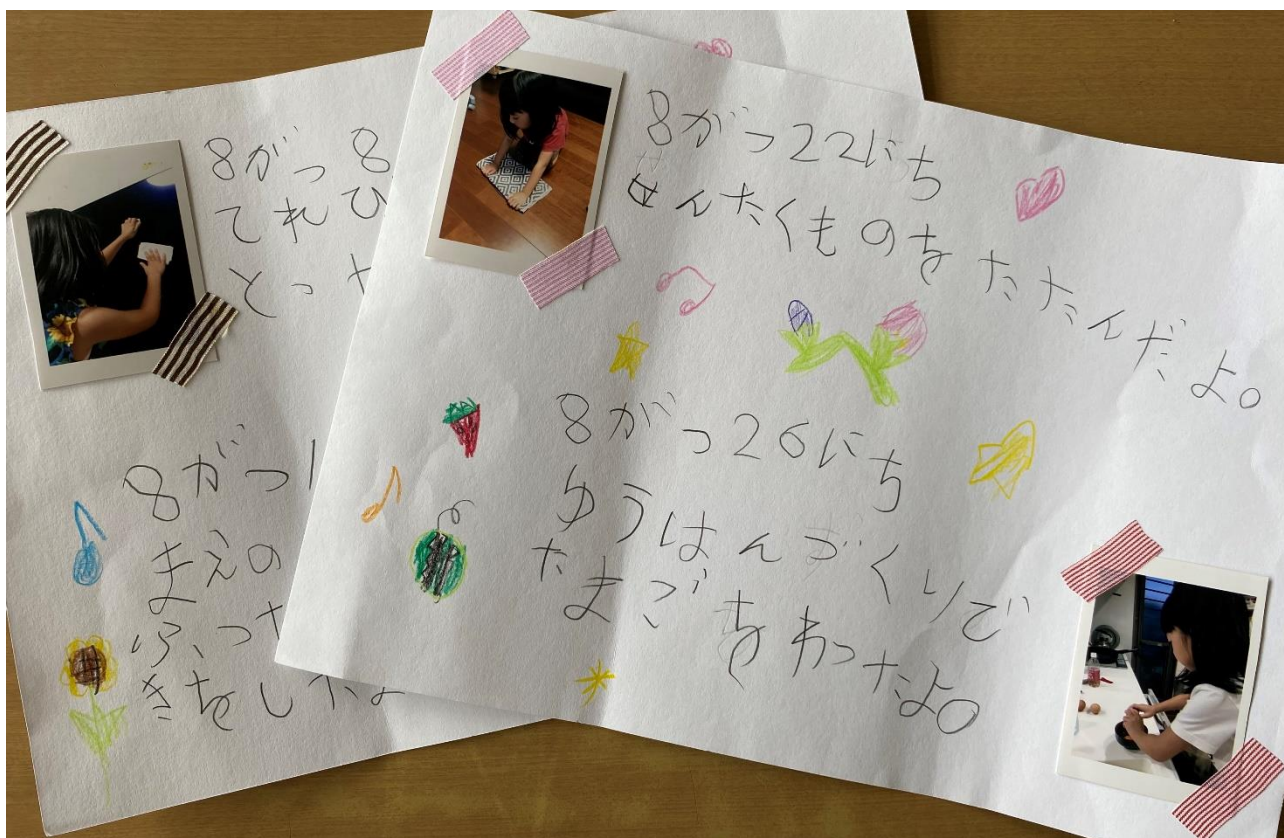 8がつ8
てれび
とった
8がつ1
まえの
ふった
きをしたよ
8がつ22にち
せんたくものをたたんだよ。
8がつ26にち
ゆうはんづくりで
たまごをわったよ。